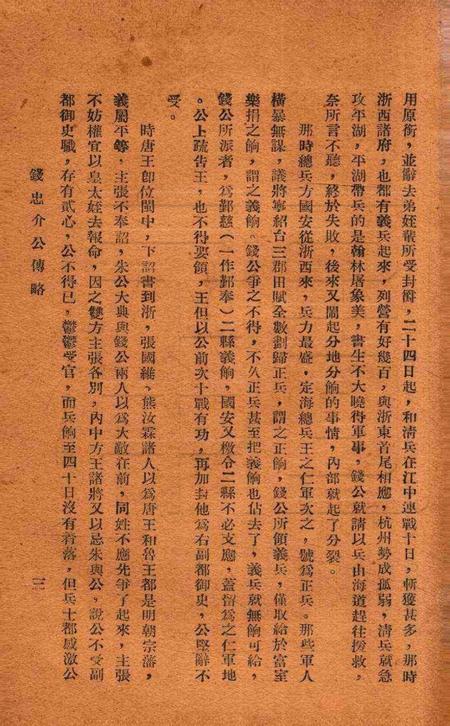 用原銜，並辭去弟姪輩所受封爵，二十四日起，和清兵在江中連戰十日，斬獲甚多，那時
浙西諸府，也都有義兵起來，列營有好幾百，與浙東首尾相應，杭州勢成孤弱，清兵就急
攻平湖，平湖帶兵的是翰林屠象美，書生不大曉得軍事，錢公就請以兵由海道趕往援救，
奈所言不聽，終於失敗，後來又鬧起分地分餉的事情，內部就起了分裂。
那時總兵方國安從浙西來，兵力最盛，定海總兵王之仁軍次之，號爲正兵。那些軍人
橫暴無謀，議將寧紹台三郡田賦全數劃歸正兵，謂之正餉，錢公所領義兵，僅取給於富室
樂捐之餉，謂之義餉。錢公爭之不得，不久正兵甚至把義餉也佔去了，義兵就無餉可給，
錢公所派者，爲鄞慈（一作鄞奉）二縣義餉，國安又檄令二縣不必支應，蓋留爲之仁軍地
。公上疏告王，也不得要領，王但以公前次十戰有功，再加封他爲右副都御史，公堅辭不
受。
時唐王卽位閩中，下詔書到浙，張國維、熊汝霖諸人以爲唐王和魯王都是明朝宗藩，
義屬平等，主張不奉詔，朱公大典與錢公兩人以爲大敵在前，同姓不應先爭了起來，主張
不妨權宜以皇太姪去報命，因之雙方主張各別，內中方王諸將又以忌朱與公，說公不受副
都御史職，存有貳心，公不得已，鬱鬱受官，而兵餉至四十日沒有着落，但兵士都感激公
錢忠介公傳略
三